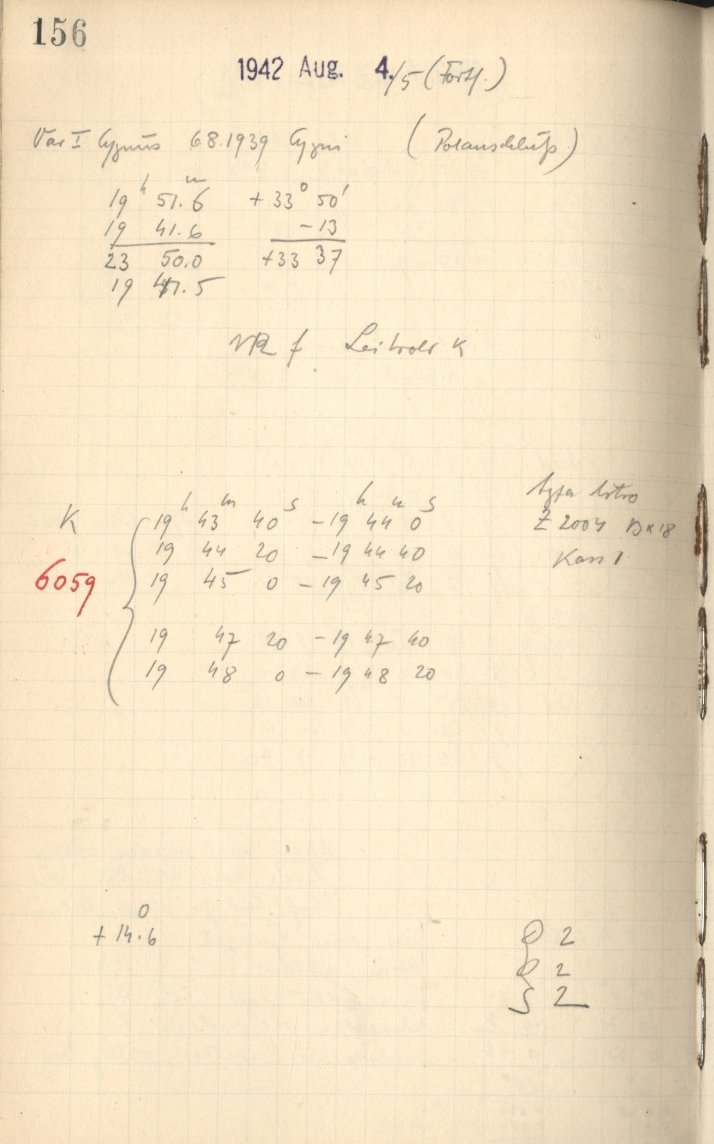 156
1942 Aug. 4./5 (Forts.)
Var I Cygnus 68.1939 Cygni (Polanschluß)
19ʰ 51.6ᵐ +33° 50'
19 41.6 -13
23 50.0 +33 37
19 41.5
f Leitrohr K
K
6059
19ʰ 43ᵐ 40ˢ - 19ʰ 44ᵐ 0ˢ
19 44 20 - 19 44 40
19 45 0 - 19 45 20
19 47 20 - 19 47 40
19 48 0 - 19 48 20
Agfa Astro
Z 2004 13x18
Kass 1
0
+ 14.6
2
2
S 2